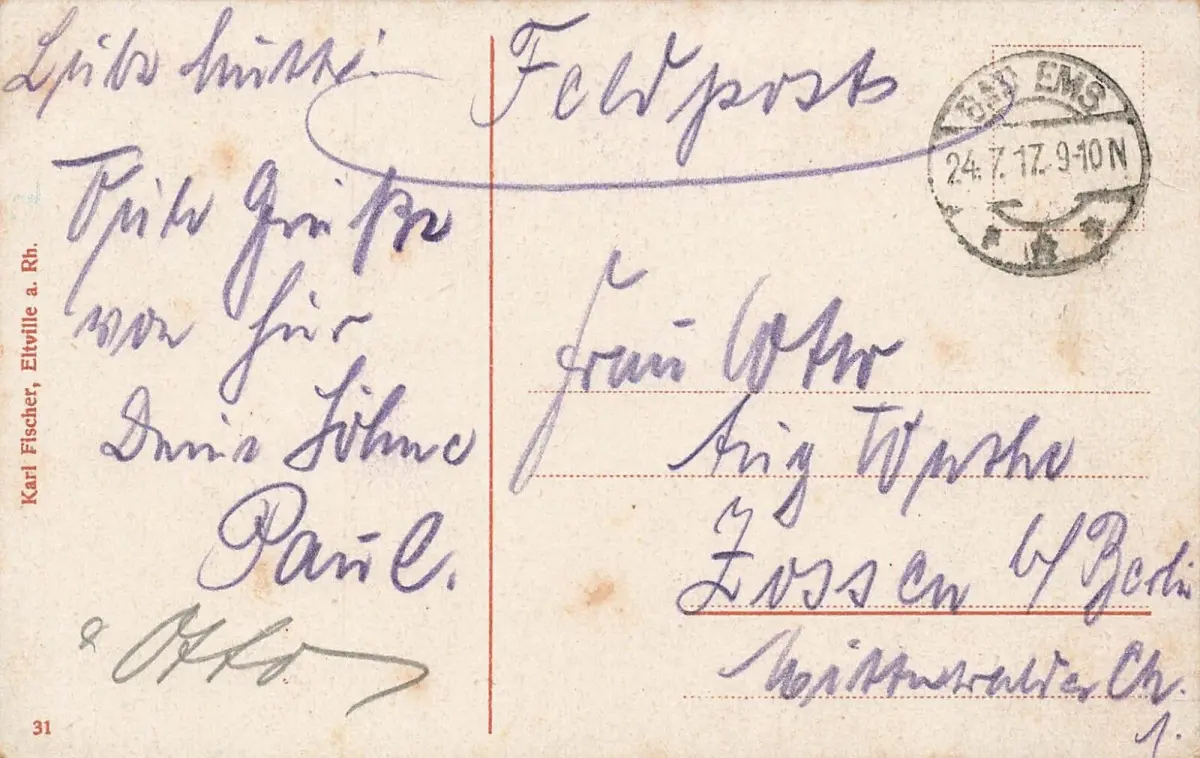 Liebe Mutti!
Viele Grüße
von hier
Deine Söhne
Paul.
& Otto
Feldpost
BAD EMS
24.7.17. 9-10 N
Frau Wtw
Aug
Zossen b/ Berlin
Mittenwalder Ch.
1.
Karl Fischer, Eltville a. Rh.
31